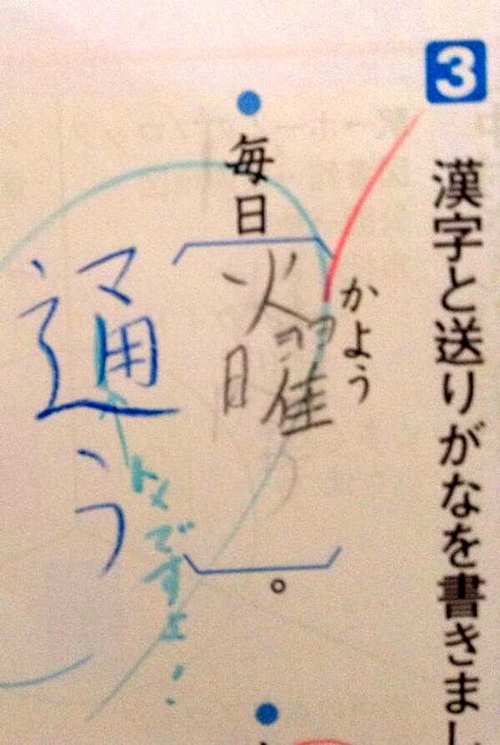 3
漢字と送りがなを書きまし
毎日
かよう
火曜
う
。
通う
トメですよ!